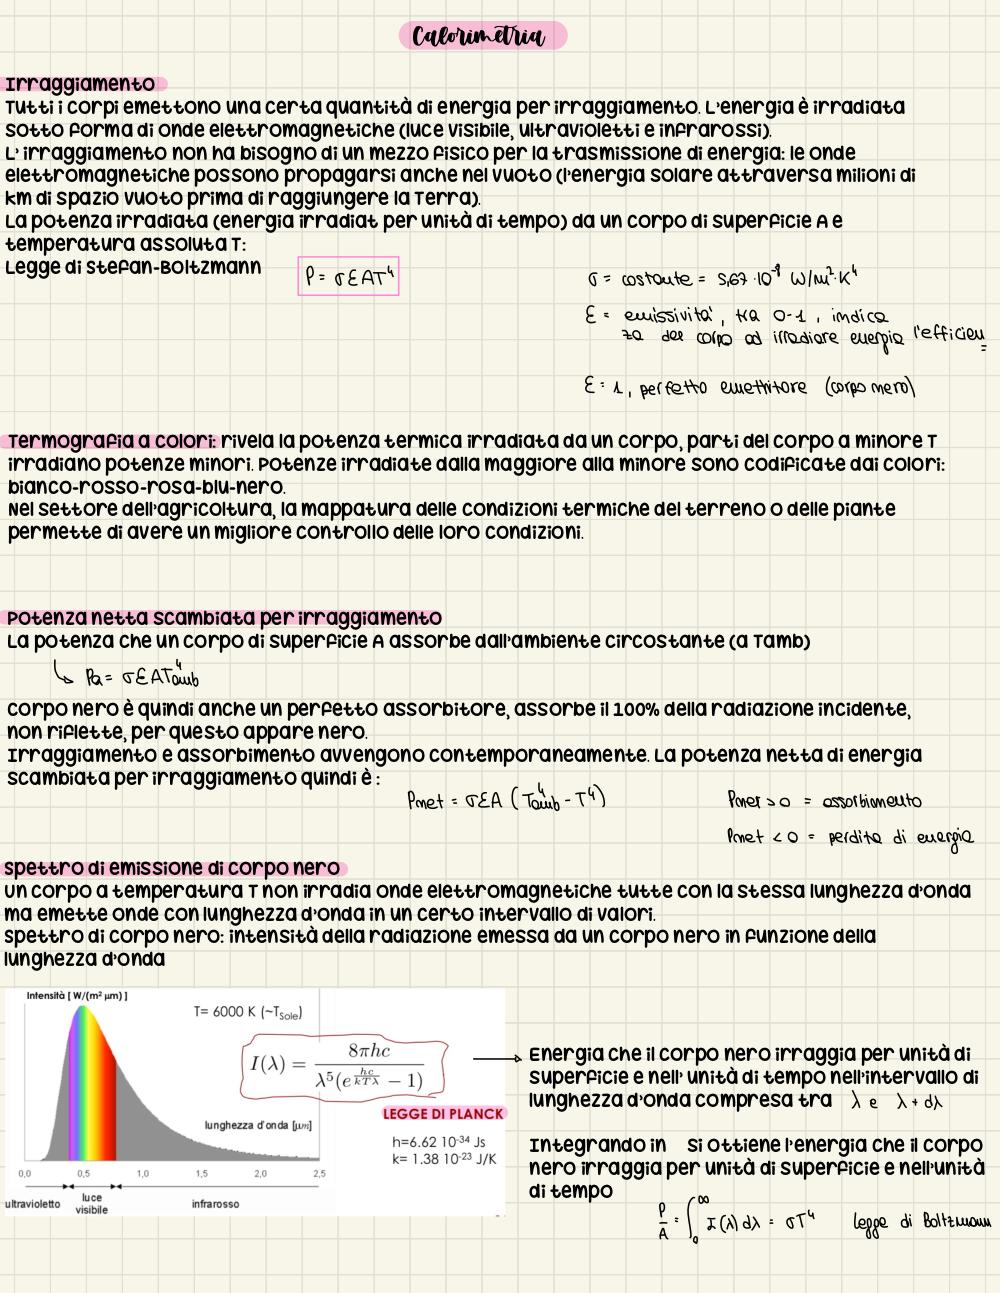 Calorimetria
Irraggiamento
Tutti i corpi emettono una certa quantità di energia per irraggiamento. L'energia è irradiata
sotto forma di onde elettromagnetiche (luce visibile, ultravioletti e infrarossi).
L' irraggiamento non ha bisogno di un mezzo fisico per la trasmissione di energia: le onde
elettromagnetiche possono propagarsi anche nel vuoto (l'energia solare attraversa milioni di
km di spazio vuoto prima di raggiungere la Terra).
La potenza irradiata (energia irradiat per unità di tempo) da un corpo di superficie A e
temperatura assoluta T:
Legge di Stefan-Boltzmann
P = σεAT⁴
σ = costante = 5,67·10⁻⁸ W/m²·K⁴
ε = emissività, tra 0-1, indica
l'efficien
za del corpo ad irradiare energia
ε = 1, perfetto emettitore (corpo nero)
Termografia a colori: rivela la potenza termica irradiata da un corpo, parti del corpo a minore T
irradiano potenze minori. Potenze irradiate dalla maggiore alla minore sono codificate dai colori:
bianco-rosso-rosa-blu-nero.
Nel settore dell'agricoltura, la mappatura delle condizioni termiche del terreno o delle piante
permette di avere un migliore controllo delle loro condizioni.
Potenza netta scambiata per irraggiamento
La potenza che un corpo di superficie A assorbe dall'ambiente circostante (a Tamb)
↳ Pa = σεAT⁴amb
Corpo nero è quindi anche un perfetto assorbitore, assorbe il 100% della radiazione incidente,
non riflette, per questo appare nero.
Irraggiamento e assorbimento avvengono contemporaneamente. La potenza netta di energia
scambiata per irraggiamento quindi è :
Pnet = σεA (T⁴amb - T⁴)
Pnet > 0 = assorbimento
Pnet < 0 = perdita di energia
Spettro di emissione di corpo nero
Un corpo a temperatura T non irradia onde elettromagnetiche tutte con la stessa lunghezza d'onda
ma emette onde con lunghezza d'onda in un certo intervallo di valori.
Spettro di corpo nero: intensità della radiazione emessa da un corpo nero in funzione della
lunghezza d'onda
Intensità [ W/(m² μm) ]
T= 6000 K (~TSole)
I(λ) = 8πhc / λ⁵(e^(hc/kTλ) − 1)
LEGGE DI PLANCK
lunghezza d'onda [μm]
h=6.62 10⁻³⁴ Js
k= 1.38 10⁻²³ J/K
0,0 0,5 1,0 1,5 2,0 2,5
ultravioletto luce visibile infrarosso
Energia che il corpo nero irraggia per unità di
superficie e nell' unità di tempo nell'intervallo di
lunghezza d'onda compresa tra λ e λ + dλ
Integrando in si ottiene l'energia che il corpo
nero irraggia per unità di superficie e nell'unità
di tempo
P/A = ∫₀^∞ I(λ) dλ = σT⁴ legge di Boltzmann